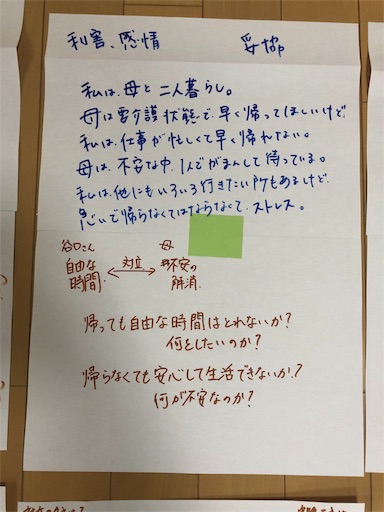 利害、感情
妥協
私は、母と二人暮らし。
母は要介護状態で、早く帰ってほしいけど
私は、仕事が忙しくて早く帰れない。
母は、不安な中、1人でがまんして待っている。
私は、他にもいろいろ行きたい所もあるけど
急いで帰らなくてはならなくて、ストレス。
谷口さん
自由な
時間
対立
母
不安の
解消
帰っても自由な時間はとれないか?
何をしたいのか?
帰らなくても安心して生活できないか?
何が不安なのか?